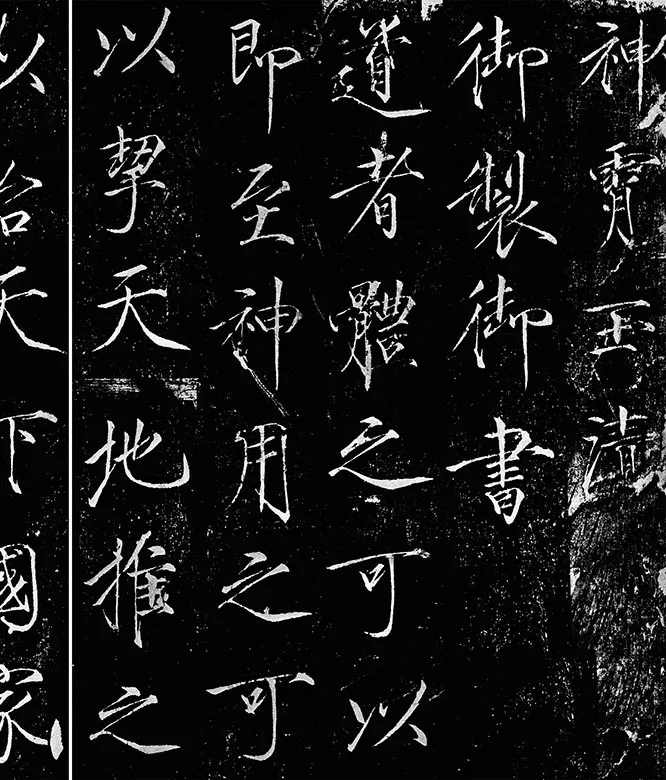 神霄玉清
御製御書
道者體之可以
即至神用之可
以挈天地推之
以治天下國家